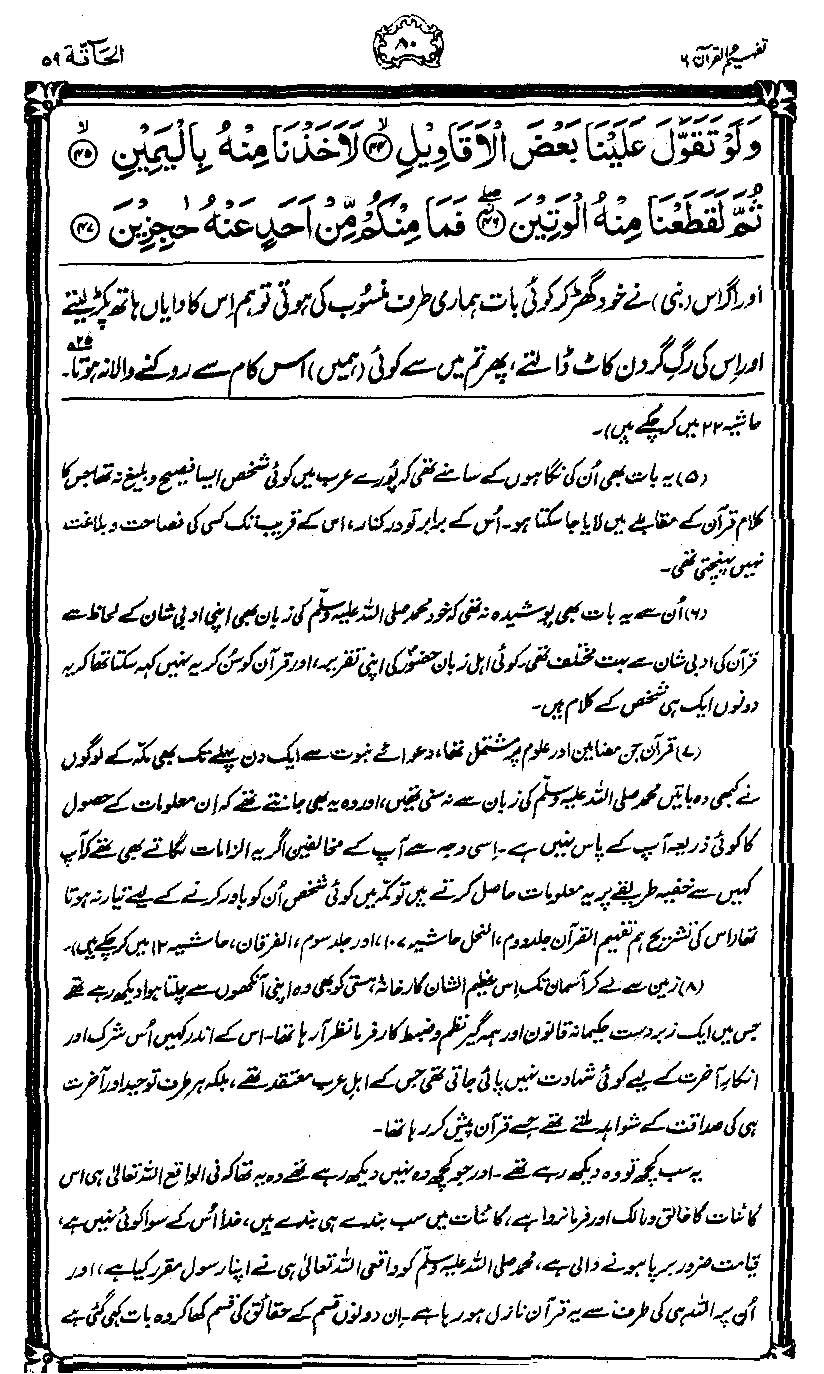 تفہیم القرآن ۶
۸۰
الحآقۃ ۵۹
وَلَوْ تَقَوَّلَ عَلَيْنَا بَعْضَ الْاَقَاوِيْلِ ۙ﴿۴۴﴾ لَاَخَذْنَا مِنْهُ بِالْيَمِيْنِ ۙ﴿۴۵﴾
ثُمَّ لَقَطَعْنَا مِنْهُ الْوَتِيْنَ ۖ﴿۴۶﴾ فَمَا مِنْكُمْ مِّنْ اَحَدٍ عَنْهُ حٰجِزِيْنَ ﴿۴۷﴾
اور اگر اس (نبی) نے خود گھڑ کر کوئی بات ہماری طرف منسُوب کی ہوتی تو ہم اِس کا دایاں ہاتھ پکڑ لیتے
اور اِس کی رگِ گردن کاٹ ڈالتے، پھر تم میں سے کوئی (ہمیں) اس کام سے روکنے والا نہ ہوتا۔ ۲۵
حاشیہ ۲۲ میں کر چکے ہیں)۔
(۵) یہ بات بھی اُن کی نگاہوں کے سامنے تھی کہ پُورے عرب میں کوئی شخص ایسا فصیح و بلیغ نہ تھا جس کا
کلام قرآن کے مقابلے میں لایا جا سکتا ہو۔ اُس کے برابر تو درکنار، اس کے قریب تک کسی کی فصاحت و بلاغت
نہیں پہنچتی تھی۔
(۶) اُن سے یہ بات بھی پوشیدہ نہ تھی کہ خود محمد صلی اللہ علیہ وسلّم کی زبان بھی اپنی ادبی شان کے لحاظ سے
قرآن کی ادبی شان سے بہت مختلف تھی۔ کوئی اہلِ زبان حضورؐ کی اپنی تقریر، اور قرآن کو سُن کر یہ نہیں کہہ سکتا تھا کہ یہ
دونوں ایک ہی شخص کے کلام ہیں۔
(۷) قرآن جن مضامین اور علوم پر مشتمل تھا، دعوائے نبوت سے ایک دن پہلے تک بھی مکّہ کے لوگوں
نے کبھی وہ باتیں محمد صلی اللہ علیہ وسلّم کی زبان سے نہ سنی تھیں، اور وہ یہ بھی جانتے تھے کہ اِن معلومات کے حصول
کا کوئی ذریعہ آپ کے پاس نہیں ہے۔ اِسی وجہ سے آپ کے مخالفین اگر یہ الزامات لگاتے بھی تھے کہ آپ
کہیں سے خفیہ طریقے پر یہ معلومات حاصل کرتے ہیں تو مکّہ میں کوئی شخص اُن کو باور کرنے کے لیے تیار نہ ہوتا
تھا (اس کی تشریح ہم تفہیم القرآن جلد دوم، النحل حاشیہ ۱۰۷، اور جلد سوم، الفرقان، حاشیہ ۱۲ میں کر چکے ہیں)۔
(۸) زمین سے لے کر آسمان تک اِس عظیم الشان کارخانۂ ہستی کو بھی وہ اپنی آنکھوں سے چلتا ہوا دیکھ رہے تھے
جس میں ایک زبردست حکیمانہ قانون اور ہمہ گیر نظم و ضبط کار فرما نظر آ رہا تھا۔ اس کے اندر کہیں اُس شرک اور
انکارِ آخرت کے لیے کوئی شہادت نہیں پائی جاتی تھی جس کے اہلِ عرب معتقد تھے، بلکہ ہر طرف توحید اور آخرت
ہی کی صداقت کے شواہد ملتے تھے جسے قرآن پیش کر رہا تھا۔
یہ سب کچھ تو وہ دیکھ رہے تھے۔ اور جو کچھ وہ نہیں دیکھ رہے تھے وہ یہ تھا کہ فی الواقع اللہ تعالیٰ ہی اس
کائنات کا خالق و مالک اور فرمانروا ہے، کائنات میں سب بندے ہی بندے ہیں، خدا اُس کے سوا کوئی نہیں ہے،
قیامت ضرور برپا ہونے والی ہے، محمد صلی اللہ علیہ وسلّم کو واقعی اللہ تعالیٰ ہی نے اپنا رسول مقرر کیا ہے، اور
اُن پر اللہ ہی کی طرف سے یہ قرآن نازل ہو رہا ہے۔ اِن دونوں قسم کے حقائق کی قسم کھا کر وہ بات کہی گئی ہے